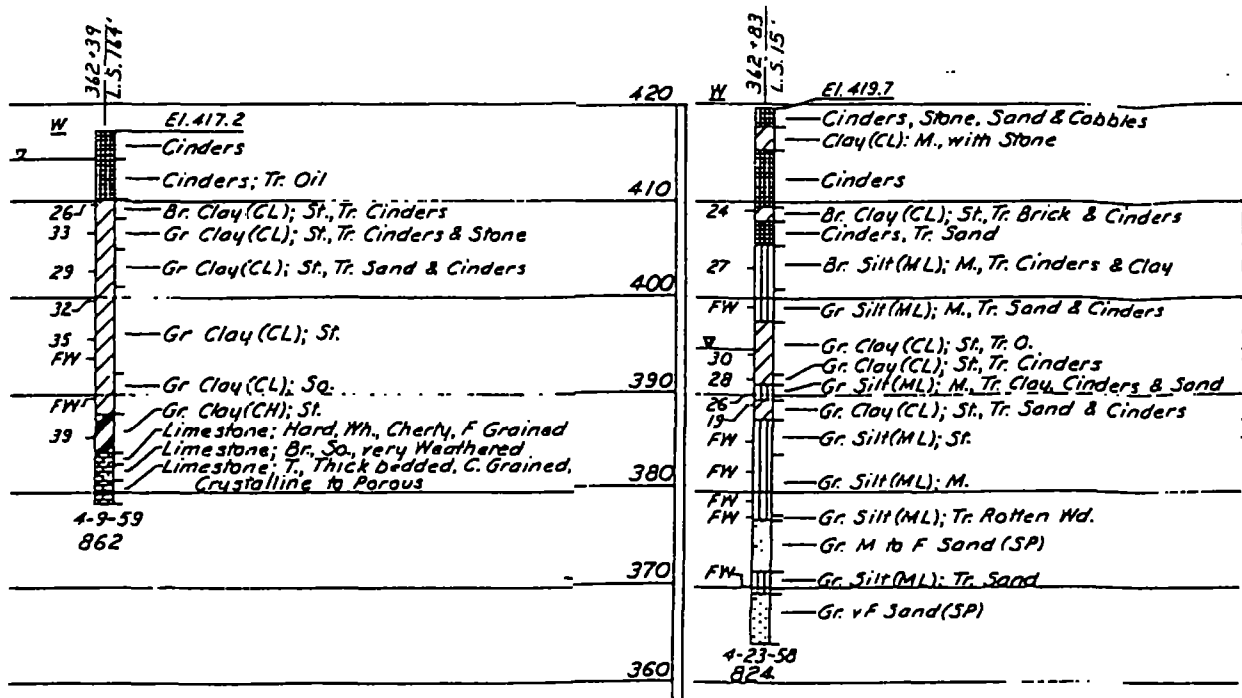 362+39
L.S. 164'
W
El. 417.2
Cinders
Cinders; Tr. Oil
26
Br. Clay (CL); St., Tr. Cinders
33
Gr Clay (CL); St., Tr. Cinders & Stone
29
Gr Clay (CL); St., Tr. Sand & Cinders
32
35
Gr Clay (CL); St.
FW
Gr Clay (CL); So.
FW
Gr. Clay (CH); St.
39
Limestone; Hard, Wh., Cherty, F Grained
Limestone; Br., So., very Weathered
Limestone; T., Thick bedded, C. Grained,
Crystalline to Porous
4-9-59
862
420
410
400
390
380
370
360
362+83
L.S. 15'
W
El. 419.7
Cinders, Stone, Sand & Cobbles
Clay (CL): M., with Stone
Cinders
24
Br. Clay (CL); St., Tr. Brick & Cinders
Cinders, Tr. Sand
27
Br. Silt (ML); M., Tr. Cinders & Clay
FW
Gr Silt (ML); M., Tr. Sand & Cinders
Gr. Clay (CL); St., Tr. O.
30
Gr. Clay (CL); St., Tr. Cinders
28
Gr Silt (ML); M., Tr. Clay, Cinders & Sand
26
Gr. Clay (CL); St., Tr. Sand & Cinders
19
FW
Gr. Silt (ML); St.
FW
Gr. Silt (ML); M.
FW
FW
Gr. Silt (ML); Tr. Rotten Wd.
Gr. M to F Sand (SP)
FW
Gr. Silt (ML); Tr. Sand
Gr. vF Sand (SP)
4-23-58
824